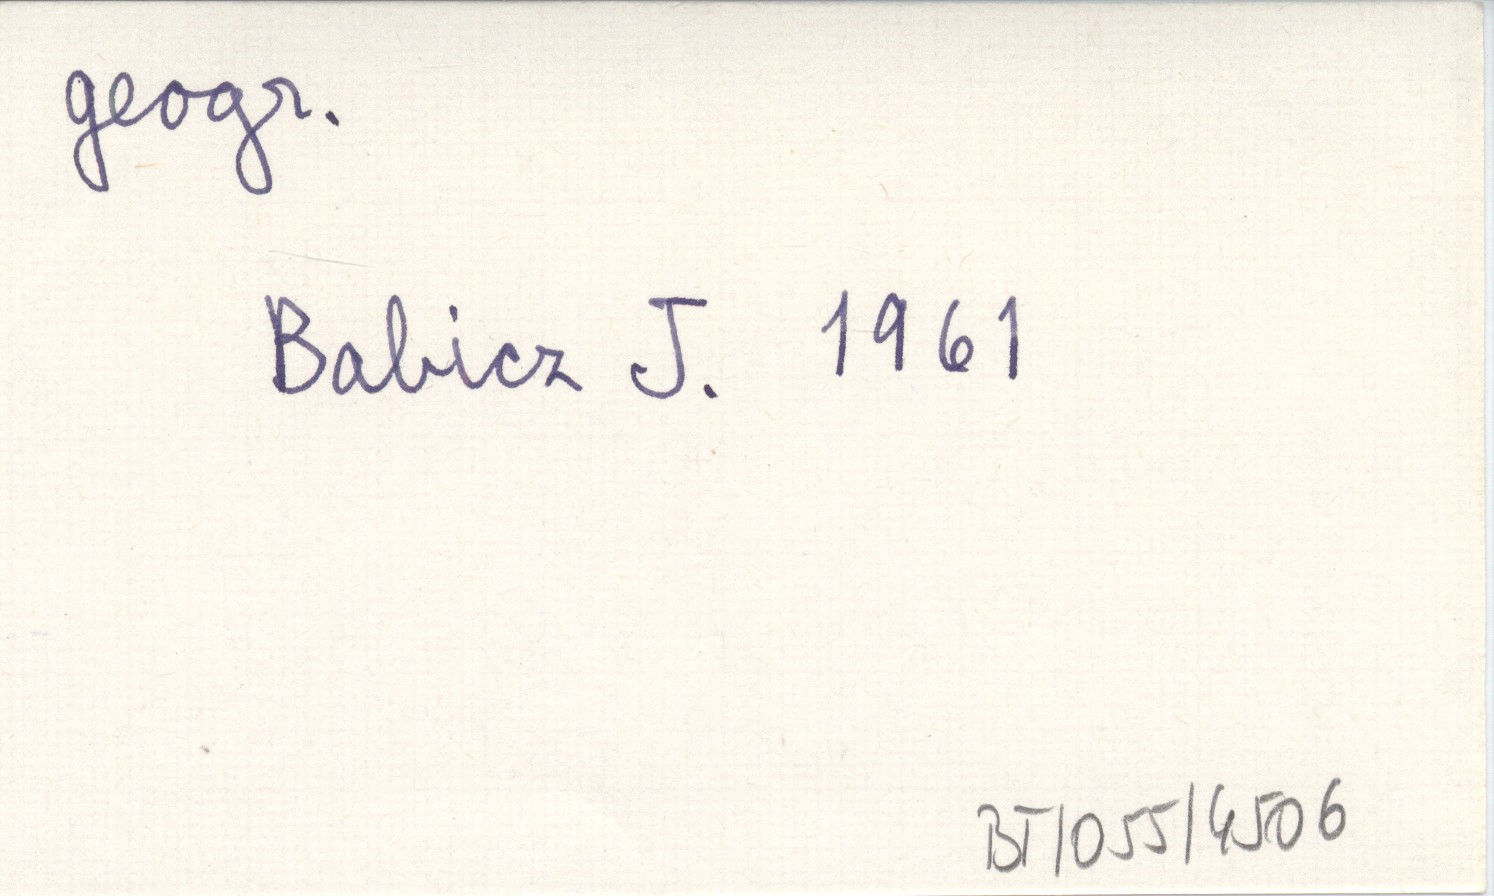 geogr.
Babicz J. 1961
BT/055/4506